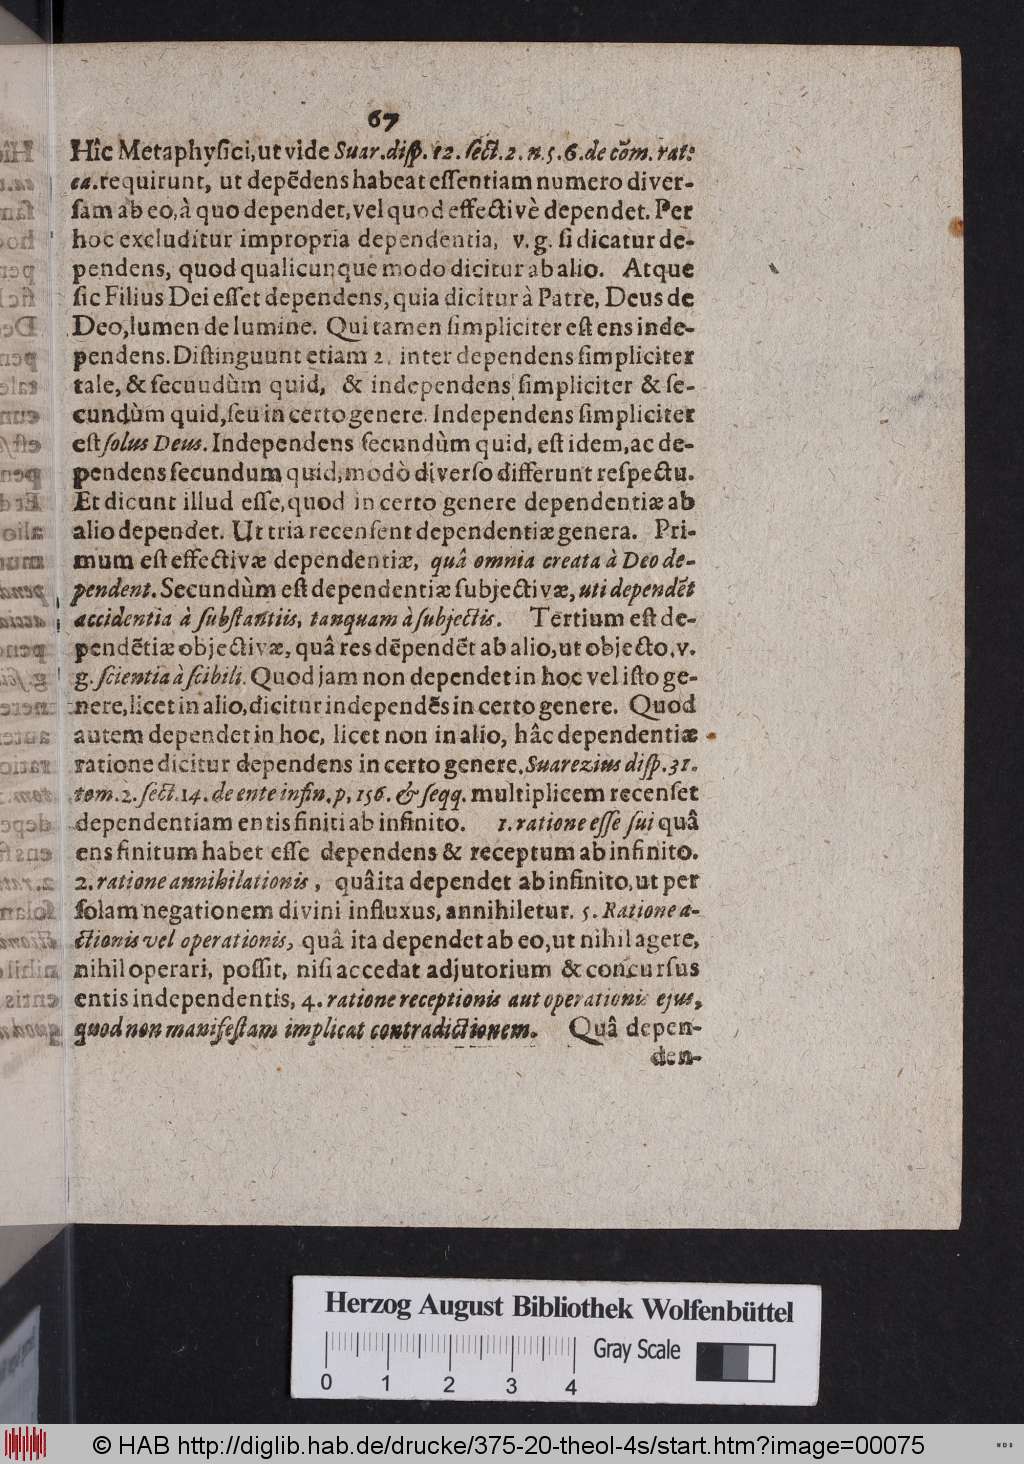 67
Hîc Metaphyſici, ut vide Suar. diſp. 12. ſect. 2. n. 5. 6. de cõm. rat:
ca. requirunt, ut depẽdens habeat eſſentiam numero diver-
ſam ab eo, à quo dependet, vel quod effectivè dependet. Per
hoc excluditur impropria dependentia, v. g. ſi dicatur de-
pendens, quod qualicunque modo dicitur ab alio. Atque
ſic Filius Dei eſſet dependens, quia dicitur à Patre, Deus de
Deo, lumen de lumine. Qui tamen ſimpliciter eſt ens inde-
pendens. Diſtinguunt etiam 2. inter dependens ſimpliciter
tale, & ſecuudùm quid, & independens ſimpliciter & ſe-
cundùm quid, ſeu in certo genere. Independens ſimpliciter
eſt ſolus Deus. Independens ſecundùm quid, eſt idem, ac de-
pendens ſecundum quid, modò diverſo differunt reſpectu.
Et dicunt illud eſſe, quod in certo genere dependentiæ ab
alio dependet. Ut tria recenſent dependentiæ genera. Pri-
mum eſt effectivæ dependentiæ, quâ omnia creata à Deo de-
pendent. Secundùm eſt dependentiæ ſubjectivæ, uti dependẽt
accidentia à ſubſtantiis, tanquam à ſubjectis. Tertium eſt de-
pendẽtiæ objectivæ, quâ res dẽpendẽt ab alio, ut objecto, v.
g. ſcientia à ſcibili. Quod jam non dependet in hoc vel iſto ge-
nere, licet in alio, dicitur independẽs in certo genere. Quod
autem dependet in hoc, licet non in alio, hâc dependentiæ
ratione dicitur dependens in certo genere. Suarezius diſp. 31.
tom. 2. ſect. 14. de ente infin. p. 156. & ſeqq. multiplicem recenſet
dependentiam entis finiti ab infinito. 1. ratione eſſe ſui quâ
ens finitum habet eſſe dependens & receptum ab infinito.
2. ratione annihilationis, quâ ita dependet ab infinito, ut per
ſolam negationem divini influxus, annihiletur. 5. Ratione a-
ctionis vel operationis, quâ ita dependet ab eo, ut nihil agere,
nihil operari, poſſit, niſi accedat adjutorium & concurſus
entis independentis, 4. ratione receptionis aut operationis ejus,
quod non manifeſtam implicat contradictionem. Quâ depen-
den-
Herzog August Bibliothek Wolfenbüttel
Gray Scale
0 1 2 3 4
© HAB http://diglib.hab.de/drucke/375-20-theol-4s/start.htm?image=00075